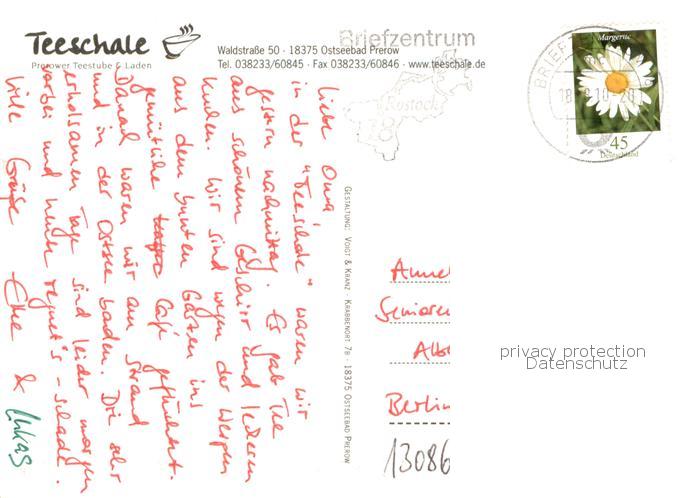 Teeschale
Prerower Teestube & Laden
Waldstraße 50 · 18375 Ostseebad Prerow
Tel. 038233/60845 · Fax 038233/60846 · www.teeschale.de
Briefzentrum
Rostock
18
BRIEF
Margerite
45
Deutschland
Liebe Oma,
in der "Teeschale" waren wir
gestern nachmittag. Es gab Tee
aus schönem Geschirr und leckeren
Kuchen. Wir sind wegen der Wespen
aus dem bunten Garten ins
gemütliche Café geflüchtet.
Danach waren wir am Strand
und in der Ostsee baden. Die sehr
erholsamen Tage sind leider morgen
vorbei und heute regnet's - schade.
Viele Grüße Eke & Lukas
GESTALTUNG: VOIGT & KRANZ · KRABBENORT 7B · 18375 OSTSEEBAD PREROW
Senioren
Berlin
13086
privacy protection
Datenschutz